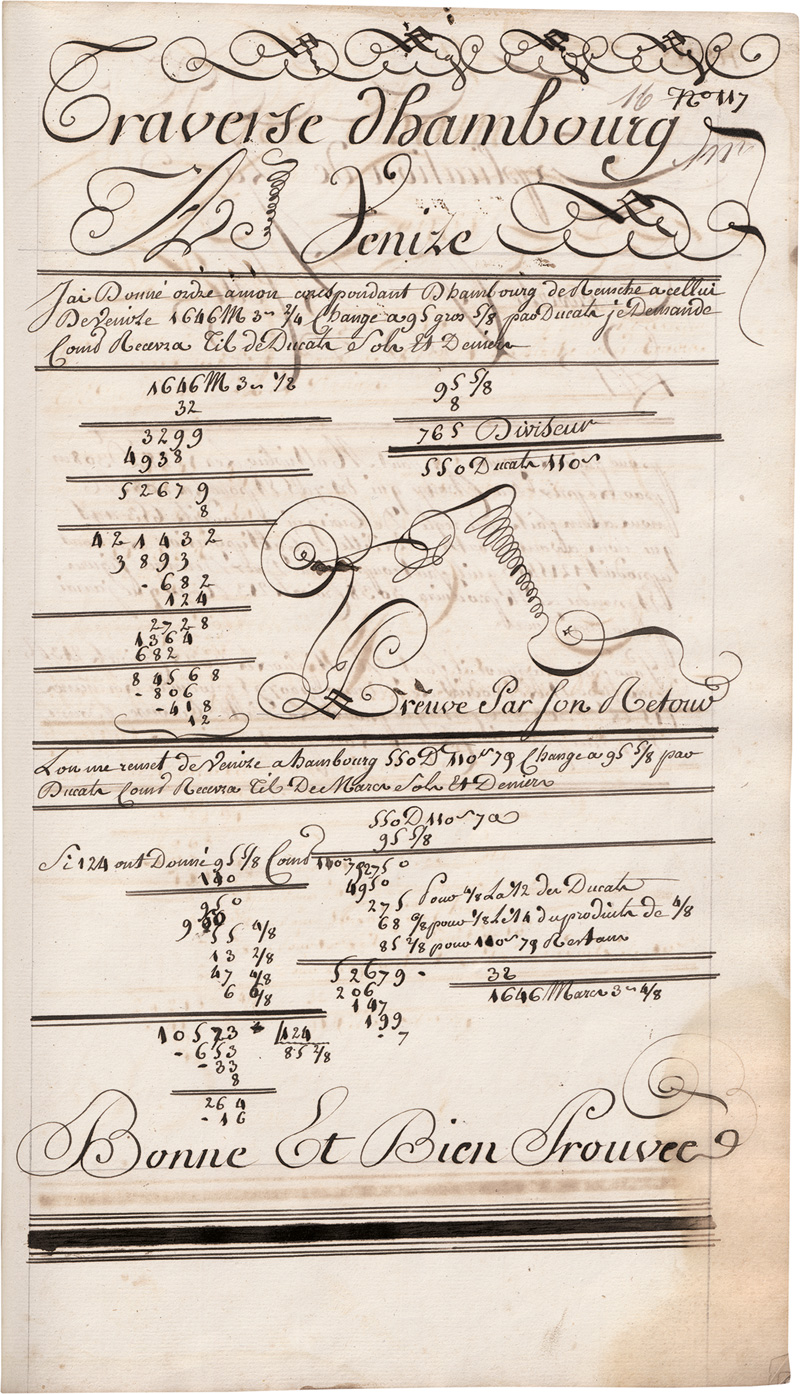 16 No 117
Traverse dhambourg
A Venize
Jai Donné ordre amon correspondant Dhambourg de Remettre a cellui
De Venize 1646 M 3 s 2/4 Change a 95 gros 5/8 par Ducats je Demande
Comb Recevra til de Ducats Sols Et Deniers
1646 M 3 s 1/2
32
3299
4938
52679
8
421432
3893
- 682
124
2728
1364
682
84568
- 806
- 418
12
95 5/8
8
765 Diviseur
550 Ducats 110 s
Preuve Par Son Retour
Lon me remet de Venize a hambourg 550 D 110 s 78 Change a 95 5/8 par
Ducats Comb Recevra til De Marcs Sols Et Deniers
550 D 110 s 78
95 5/8
Si 124 ont Donné 95 5/8 Comb 110 s 78
110
950
55 4/8
13 2/8
47 4/8
6 6/8
10573 124
- 653 85 2/8
- 33
8
264
- 16
2750
4950
275 Pour 4/8 La 1/2 des Ducats
68 6/8 pour 1/8 Le 1/4 du produite de 4/8
85 2/8 pour 110 s 78 Restans
52679 - 32
206 1646 Marcs 3 s 4/8
147
199
- 7
Bonne Et Bien Prouvee